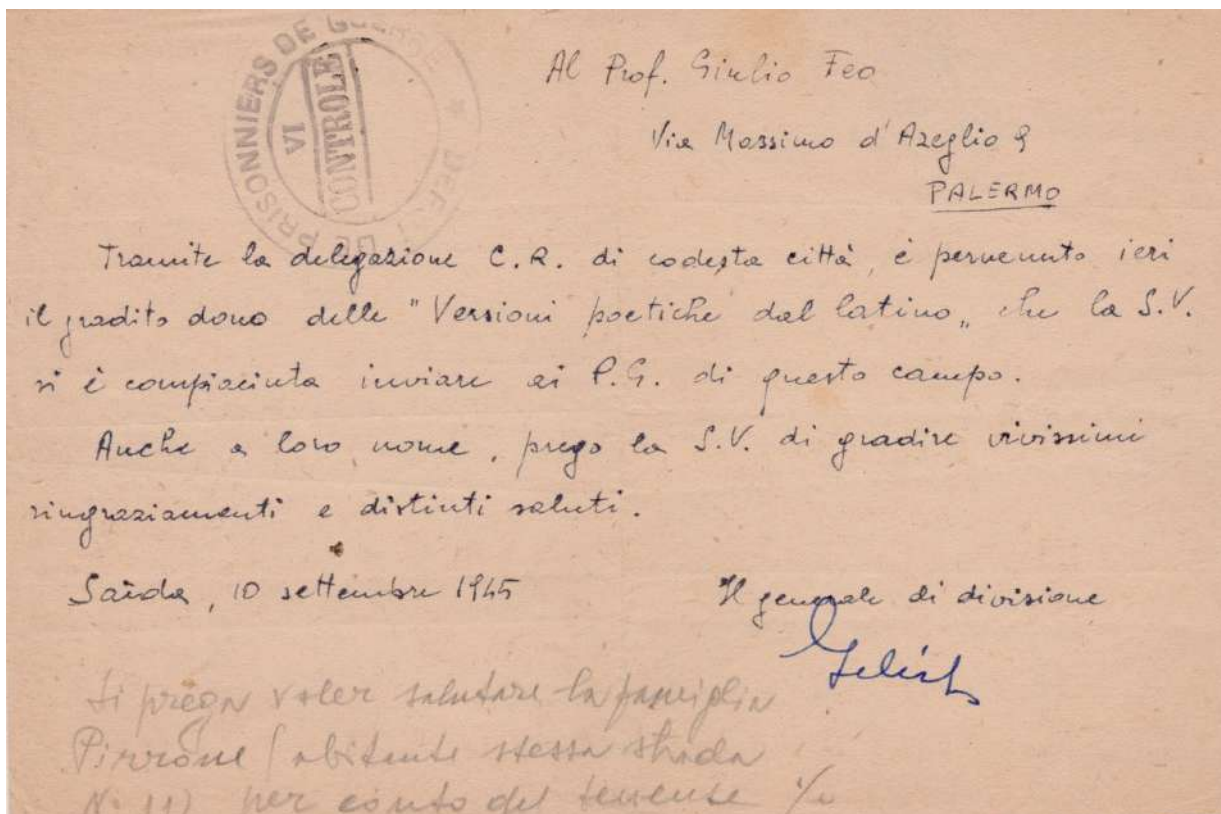 PRISONNIERS DE GUERRE
VI
CONTROLE
Al Prof. Giulio Feo
Via Massimo d'Azeglio 9
PALERMO
Tramite la delegazione C.R. di codesta città, è pervenuto ieri
il gradito dono delle "Versioni poetiche dal latino" che la S.V.
si è compiaciuta inviare ai P.G. di questo campo.
Anche a loro nome, prego la S.V. di gradire vivissimi
ringraziamenti e distinti saluti.
Saïda, 10 settembre 1945
Il generale di divisione
Si prega voler salutare la famiglia
Pirrone (abitante stessa strada
N. 11) per conto del tenente